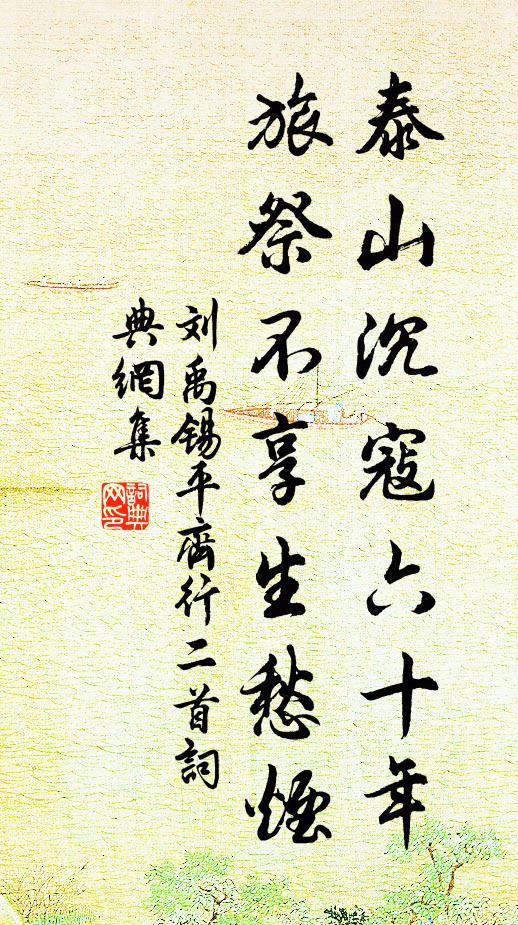 泰山沉寇六十年
旅祭不享生愁煙
刘禹锡平齊行二首詞
典網集
詞典
网印